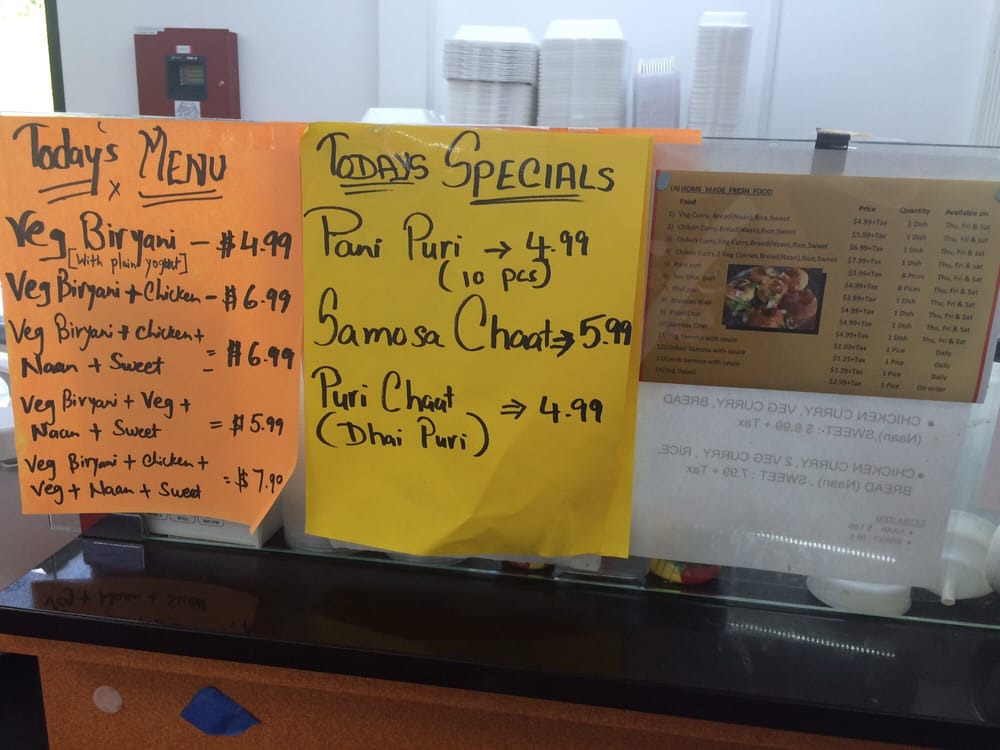 Today's MENU
Veg Biryani - $4.99
[With plain yogurt]
Veg Biryani + Chicken - $6.99
Veg Biryani + chicken +
Naan + Sweet = $6.99
Veg Biryani + Veg +
Naan + Sweet = $5.99
Veg Biryani + Chicken +
Veg + Naan + Sweet = $7.99
TODAYS SPECIALS
Pani Puri → 4.99
(10 pcs)
Samosa Chaat ⇒ 5.99
Puri Chaat ⇒ 4.99
(Dhai Puri)
(A) HOME MADE FRESH FOOD
Food Price Quantity Available on
1) Veg Curry, Bread(Naan),Rice,Sweet $4.99+Tax 1 Dish Thu, Fri & Sat
2) Chiken Curry,Bread(Naan),Rice,Sweet $5.99+Tax 1 Dish Thu, Fri & Sat
3) Chiken Curry,Veg Curry,Bread(Naan),Rice,Sweet $6.99+Tax 1 Dish Thu, Fri & Sat
4) Chiken Curry,2 Veg Curries,Bread(Naan),Rice,Sweet $7.99+Tax 1 Dish Thu, Fri & Sat
$3.99+Tax 8 Pices Thu, Fri & Sat
$4.99+Tax 8 Pices Thu, Fri & Sat
$3.99+Tax 1 Dish Thu, Fri & Sat
$4.99+Tax 1 Dish Thu, Fri & Sat
$4.99+Tax 1 Dish Thu, Fri & Sat
Samosa Chat $4.99+Tax 1 Dish Thu, Fri & Sat
Samosa with sauce $1.00+Tax 1 Pice Daily
12)Chiken Samosa with sauce $1.25+Tax 1 Pice Daily
Samosa with sauce $1.25+Tax 1 Pice Daily
14)Veg $2.99+Tax 1 Pice On order
• CHICKEN CURRY, VEG CURRY, BREAD
(Naan),SWEET:- $ 6.99 + Tax
• CHICKEN CURRY, 2 VEG CURRY , RICE,
BREAD (Naan) , SWEET : 7.99 + Tax
EXTRA ITEM
• NAAN $ 1.00
• SWEET